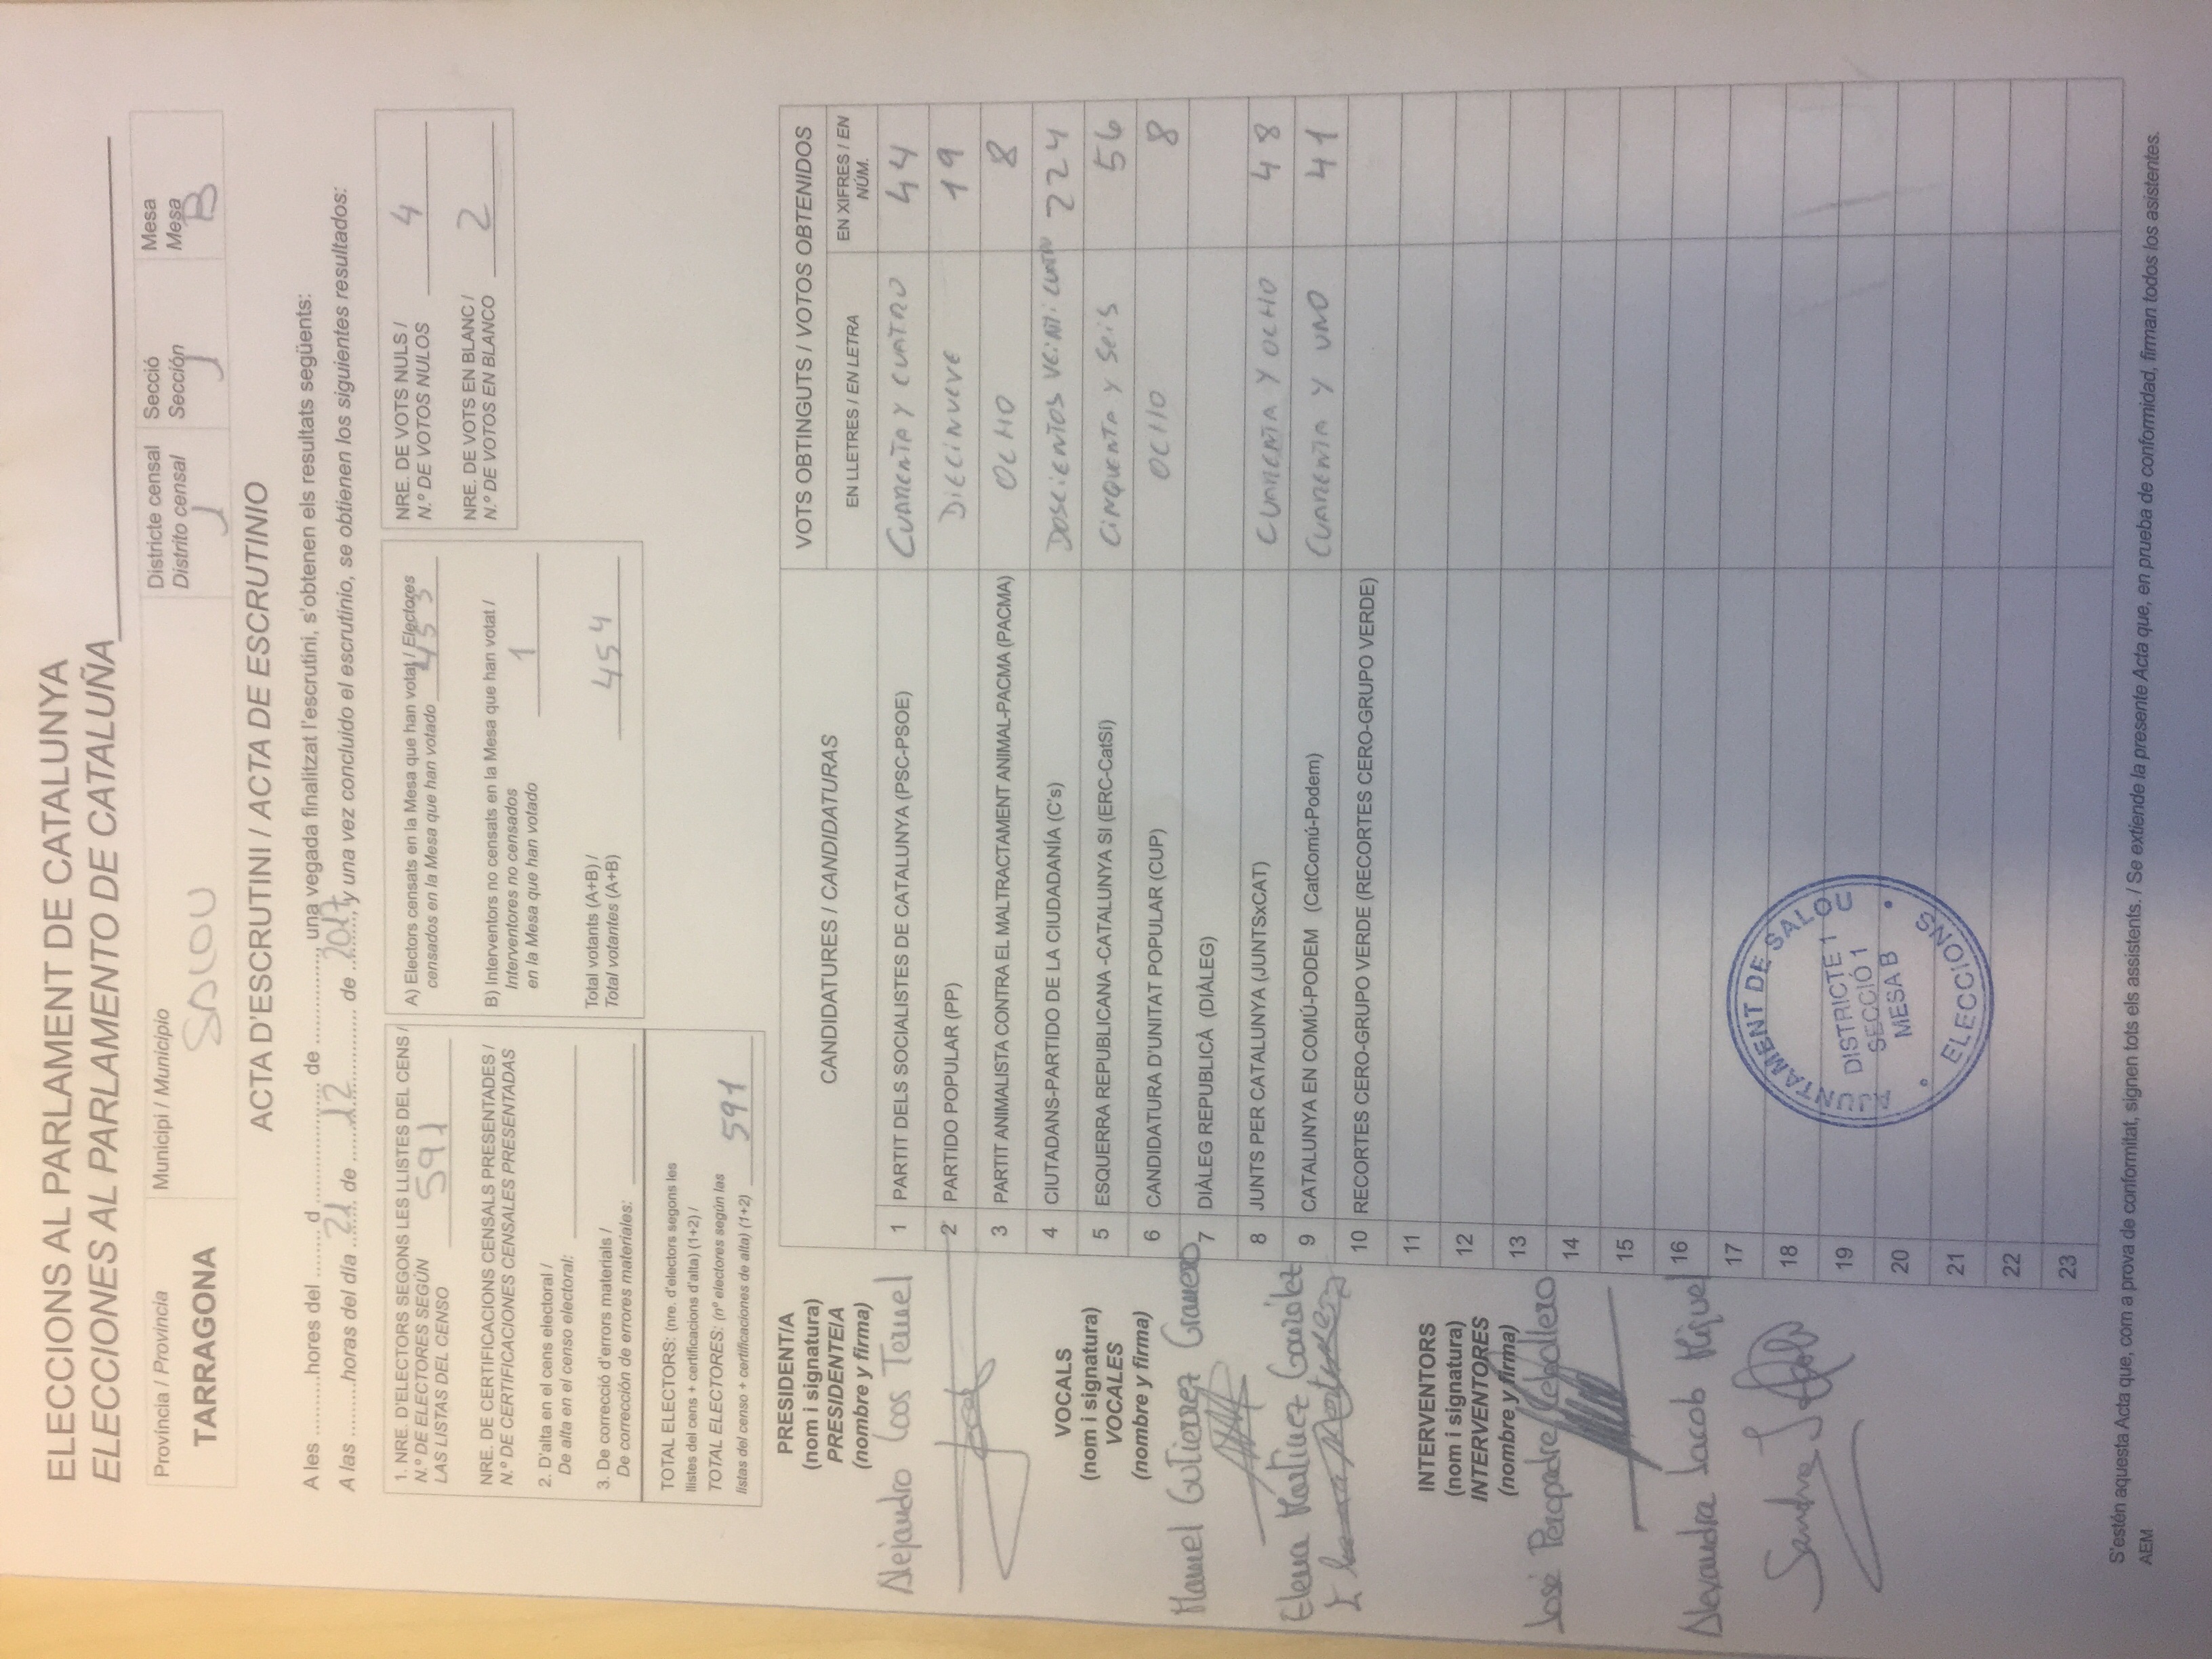 ELECCIONS AL PARLAMENT DE CATALUNYA
ELECCIONES AL PARLAMENTO DE CATALUÑA
Província / Provincia
TARRAGONA
Municipi / Municipio
SALOU
Districte censal
Distrito censal
1
Secció
Sección
1
Mesa
Mesa
B
ACTA D'ESCRUTINI / ACTA DE ESCRUTINIO
A les ..........hores del ........ d ..................... de ................, una vegada finalitzat l'escrutini, s'obtenen els resultats següents:
A las .........horas del día 21 de 12 de 2017, y una vez concluido el escrutinio, se obtienen los siguientes resultados:
1. NRE. D'ELECTORS SEGONS LES LLISTES DEL CENS /
N.º DE ELECTORES SEGÚN
LAS LISTAS DEL CENSO 591
NRE. DE CERTIFICACIONS CENSALS PRESENTADES /
N.º DE CERTIFICACIONES CENSALES PRESENTADAS
2. D'alta en el cens electoral /
De alta en el censo electoral:
3. De correcció d'errors materials /
De corrección de errores materiales:
TOTAL ELECTORS: (nre. d'electors segons les
llistes del cens + certificacions d'alta) (1+2) /
TOTAL ELECTORES: (nº electores según las
listas del censo + certificaciones de alta) (1+2) 591
A) Electors censats en la Mesa que han votat / Electores
censados en la Mesa que han votado 453
B) Interventors no censats en la Mesa que han votat /
Interventores no censados
en la Mesa que han votado 1
Total votants (A+B) /
Total votantes (A+B) 454
NRE. DE VOTS NULS /
N.º DE VOTOS NULOS 4
NRE. DE VOTS EN BLANC /
N.º DE VOTOS EN BLANCO 2
PRESIDENT/A
(nom i signatura)
PRESIDENTE/A
(nombre y firma)
Alejandro Coos Teruel
VOCALS
(nom i signatura)
VOCALES
(nombre y firma)
Manuel Gutierrez Granero
Elena Martinez González
INTERVENTORS
(nom i signatura)
INTERVENTORES
(nombre y firma)
José Peropadre Cebollero
Alexandra Jacob Miquel
CANDIDATURES / CANDIDATURAS
VOTS OBTINGUTS / VOTOS OBTENIDOS
EN LLETRES / EN LETRA
EN XIFRES / EN
NÚM.
1 PARTIT DELS SOCIALISTES DE CATALUNYA (PSC-PSOE) CUARENTA Y CUATRO 44
2 PARTIDO POPULAR (PP) DIECINUEVE 19
3 PARTIT ANIMALISTA CONTRA EL MALTRACTAMENT ANIMAL-PACMA (PACMA) OCHO 8
4 CIUTADANS-PARTIDO DE LA CIUDADANÍA (C's) DOSCIENTOS VEINTI CUATRO 224
5 ESQUERRA REPUBLICANA -CATALUNYA SI (ERC-CatSí) CINQUENTA Y SEIS 56
6 CANDIDATURA D'UNITAT POPULAR (CUP) OCHO 8
7 DIÀLEG REPUBLICÀ (DIÀLEG)
8 JUNTS PER CATALUNYA (JUNTSxCAT) CUARENTA Y OCHO 48
9 CATALUNYA EN COMÚ-PODEM (CatComú-Podem) CUARENTA Y UNO 41
10 RECORTES CERO-GRUPO VERDE (RECORTES CERO-GRUPO VERDE)
11
12
13
14
15
16
17
18
19
20
21
22
23
AJUNTAMENT DE SALOU
DISTRICTE 1
SECCIÓ 1
MESA B
ELECCIONS
S'estén aquesta Acta que, com a prova de conformitat, signen tots els assistents. / Se extiende la presente Acta que, en prueba de conformidad, firman todos los asistentes.
AEM